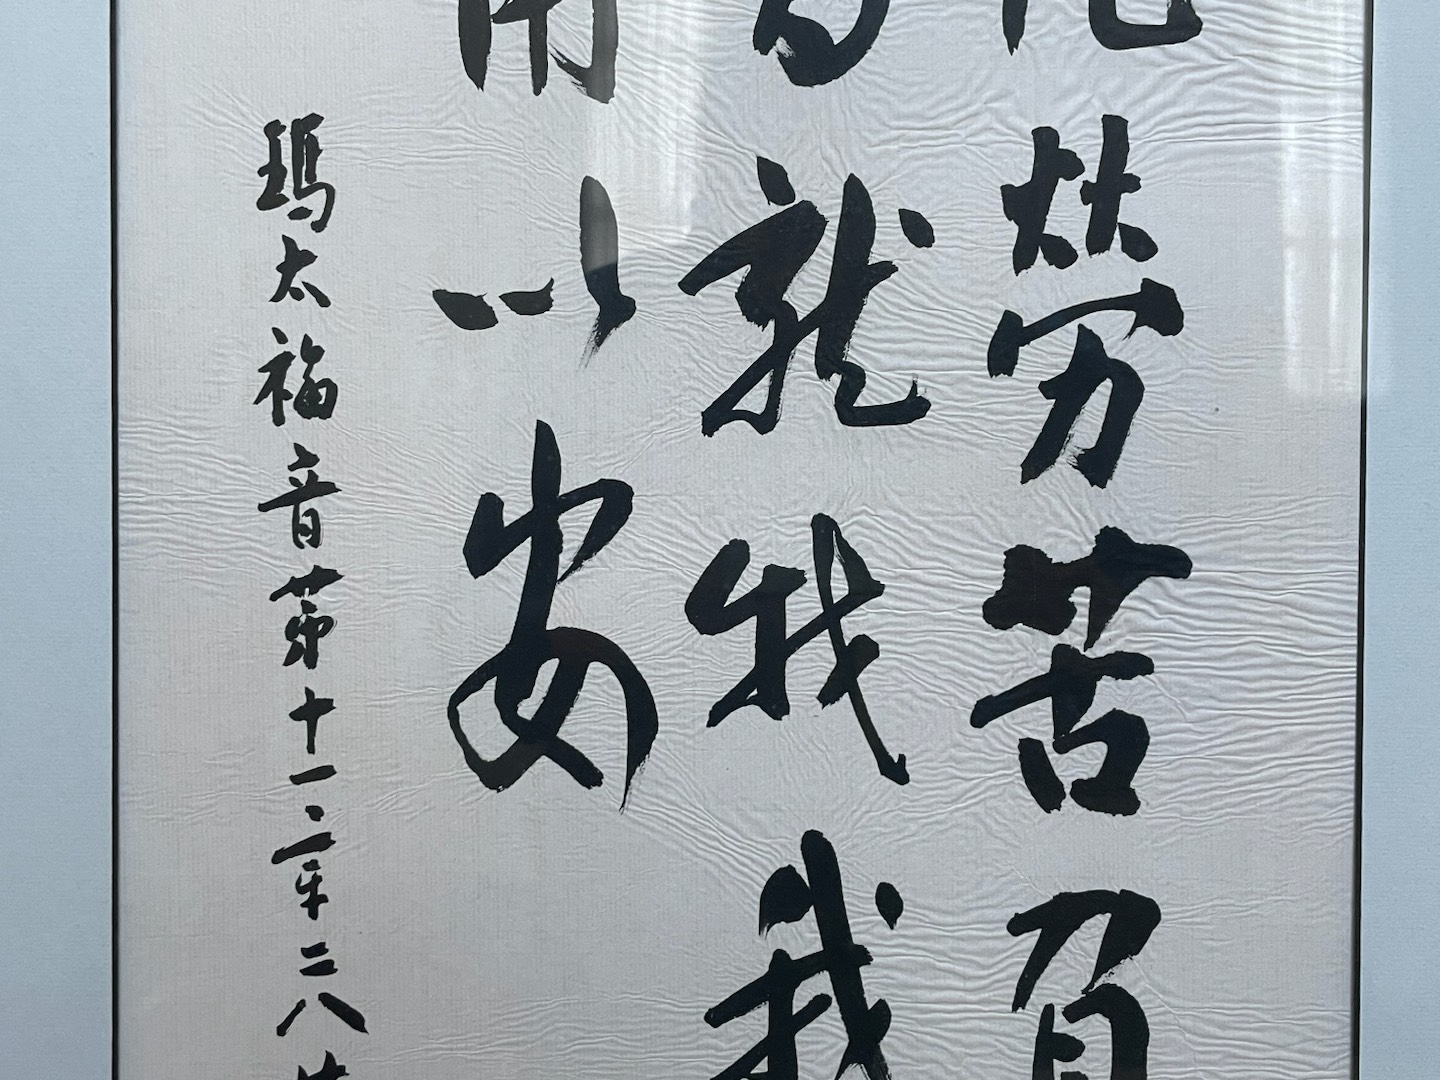 勞苦負
就我我
以安
瑪太福音第十一章二八